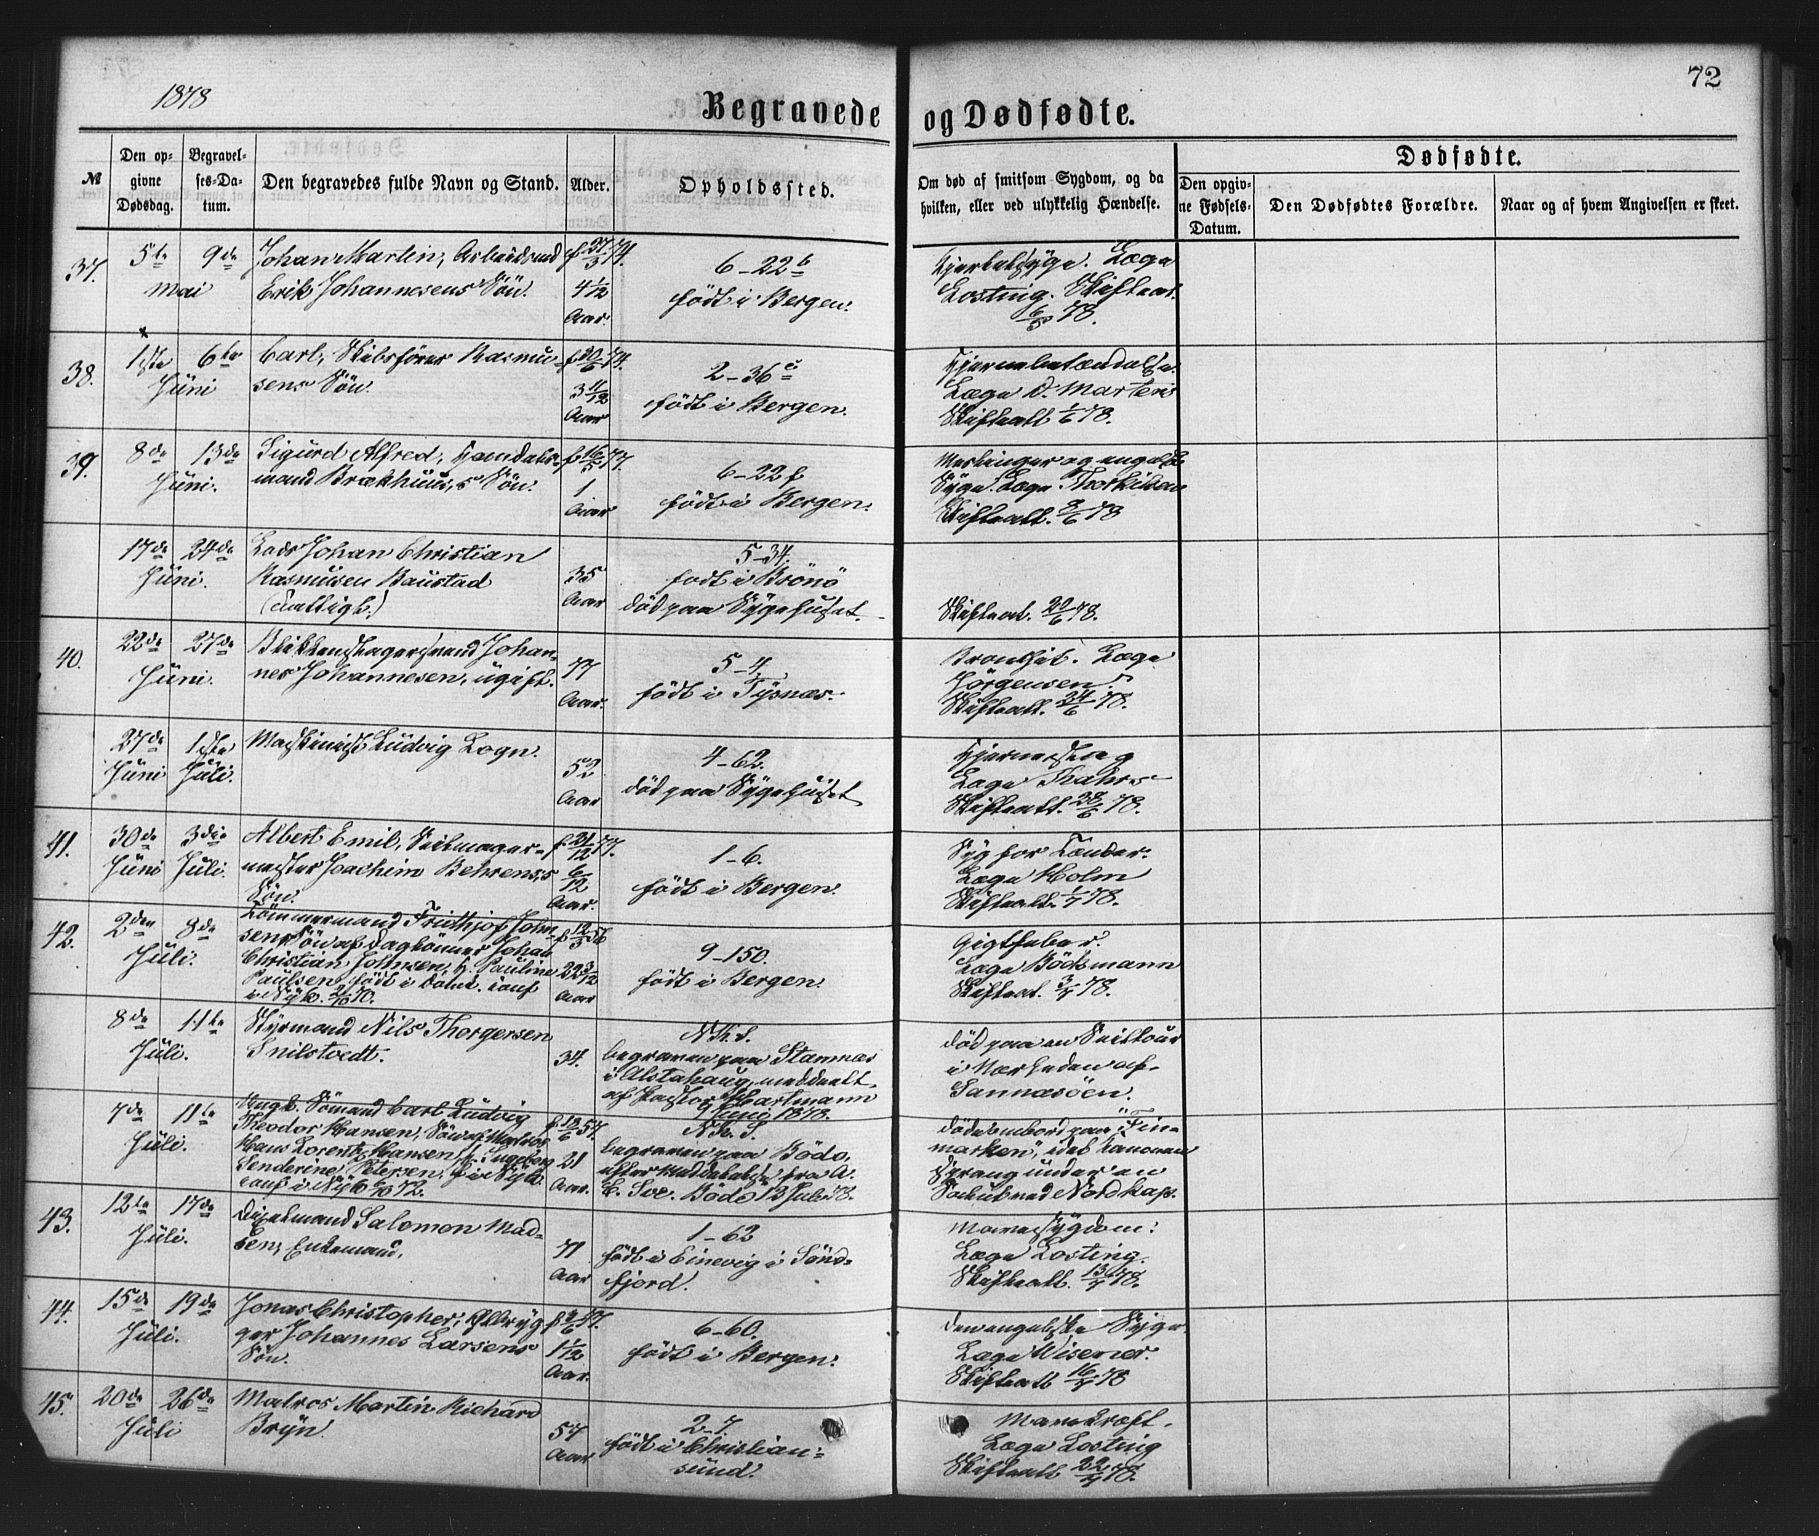 1878
72
Begravede og Dødfødte.
№
Den op-
givne
Dødsdag.
Begravel-
ses-Da-
tum.
Den begravedes fulde Navn og Stand.
Alder.
Opholdssted.
Om død af smitsom Sygdom, og da
hvilken, eller ved ulykkelig Hændelse.
Dødfødte.
Den opgiv-
ne Fødsels-
Datum.
Den Dødfødtes Forældre.
Naar og af hvem Angivelsen er skeet.
37.
5te
Mai
9de
Johan Martin, Arbeidsmd
Erik Johannesens Søn.
f 27/3 74.
4 1/12
Aar.
6-22b
født i Bergen.
Kjertelsyge. Læge
Losting. Skifteat.
6/5 78.
38.
1ste
Juni
6te
Carl, Skibsfører Rasmu-
sens Søn.
f 20/6 74.
3 11/12
Aar
2-36c
født i Bergen.
Hjernebetændelse.
Læge D. Martens
Skifteatt 1/6 78.
39.
8de
Juni.
13de
Sigurd Alfred, Handels-
mand Brækhuus,s Søn.
f 16/5 77.
1
Aar
6-22f
født i Bergen.
Meslinger og engelsk
Syge. Læge Thorkildsen
Skifteatt. 8/6 78
17de
Juni.
24de
Lods Johan Christian
Rasmusen Baustad
35
Aar
5-34.
født i Brønø
død paa Sygehuset.
Skifteat. 20/6 78.
40.
22de
Juni.
27de
Blikkenslagersvend Johan-
nes Johannesen, ugift.
77
Aar.
5-4
født i Tysnæs.
Bronchit. Læge
Jørgensen
Skifteatt. 24/6 78.
27de
Juni
1ste
Juli.
Maskinist Ludvig Logn.
52
Aar
4-62.
død paa Sygehuset
Hjerneslag
Læge
Skifteatt. 28/6 78.
41.
30de
Juni
3die
Juli.
Albert Emil, Seilmager-
mester Joachim Behrens,s
Søn.
f 21/12 77.
6/12
Aar.
1-6.
født i Bergen.
Syg for Tænder.
Læge Holm
Skifteatt. 1/7 78.
42.
2den
Juli.
9de
Tømmermand Frithjof John-
sen, Søn af Daglønner Johan
Christian Johnsen, h. Pauline
Paulsen, født i
i Nyk. 2/10 70.
f 12/3 56
22 3/12
Aar
9-150.
født i Bergen.
Gigtfeber.
Læge Bødtmann
Skifteat. 3/7 78.
8de
Juli.
11te
Styrmand Nils Thorgersen
Snilstvedt.
34.
N.K.S.
begraven paa Stamnæs
i Alstahaug, meddeelt
af Pastor Hartmann
1878.
død paa en Seiltour
i Nærheden af
Sannæsøen.
7de
Juli.
11te
Ungk. Sømand Carl Ludvig
Theodor Hansen, Søn af Matros
Hans Lorentz Hansen, h. Ingeborg
Senderine Petersen, f. i Nyk.
conf. i Nyk. 72.
f 12/6 57.
21
Aar.
N.K.S.
begraven paa Bodø,
efter Meddelelse fra A.
E. Soe. Bodø 12 Juli 78.
døde ombord paa "Fin-
marken", idet Kanonen
sprang under en
Salut ved Nordkap.
43.
12te
Juli.
17de
Salomon Mad-
sen, Enkemand.
77
Aar
1-62
født i Einevig i Sønd-
fjord.
Mavesygdom.
Læge Losting.
Skifteatt. 13/7 78.
44.
15de
Juli.
19de
Jonas Christopher, Ølbryg-
ger Johannes Larsens
Søn.
1 1/12
Aar.
6-60.
født i Bergen.
Den engelske Syge.
Læge Wisener.
Skifteatt 16/7 78
45.
20de
Juli
26de
Matros Martin Richard
Bryn.
57
Aar
2-7
født i Christian-
sund.
Mavekræft.
Læge Losting
Skifteatt 22/7 78.